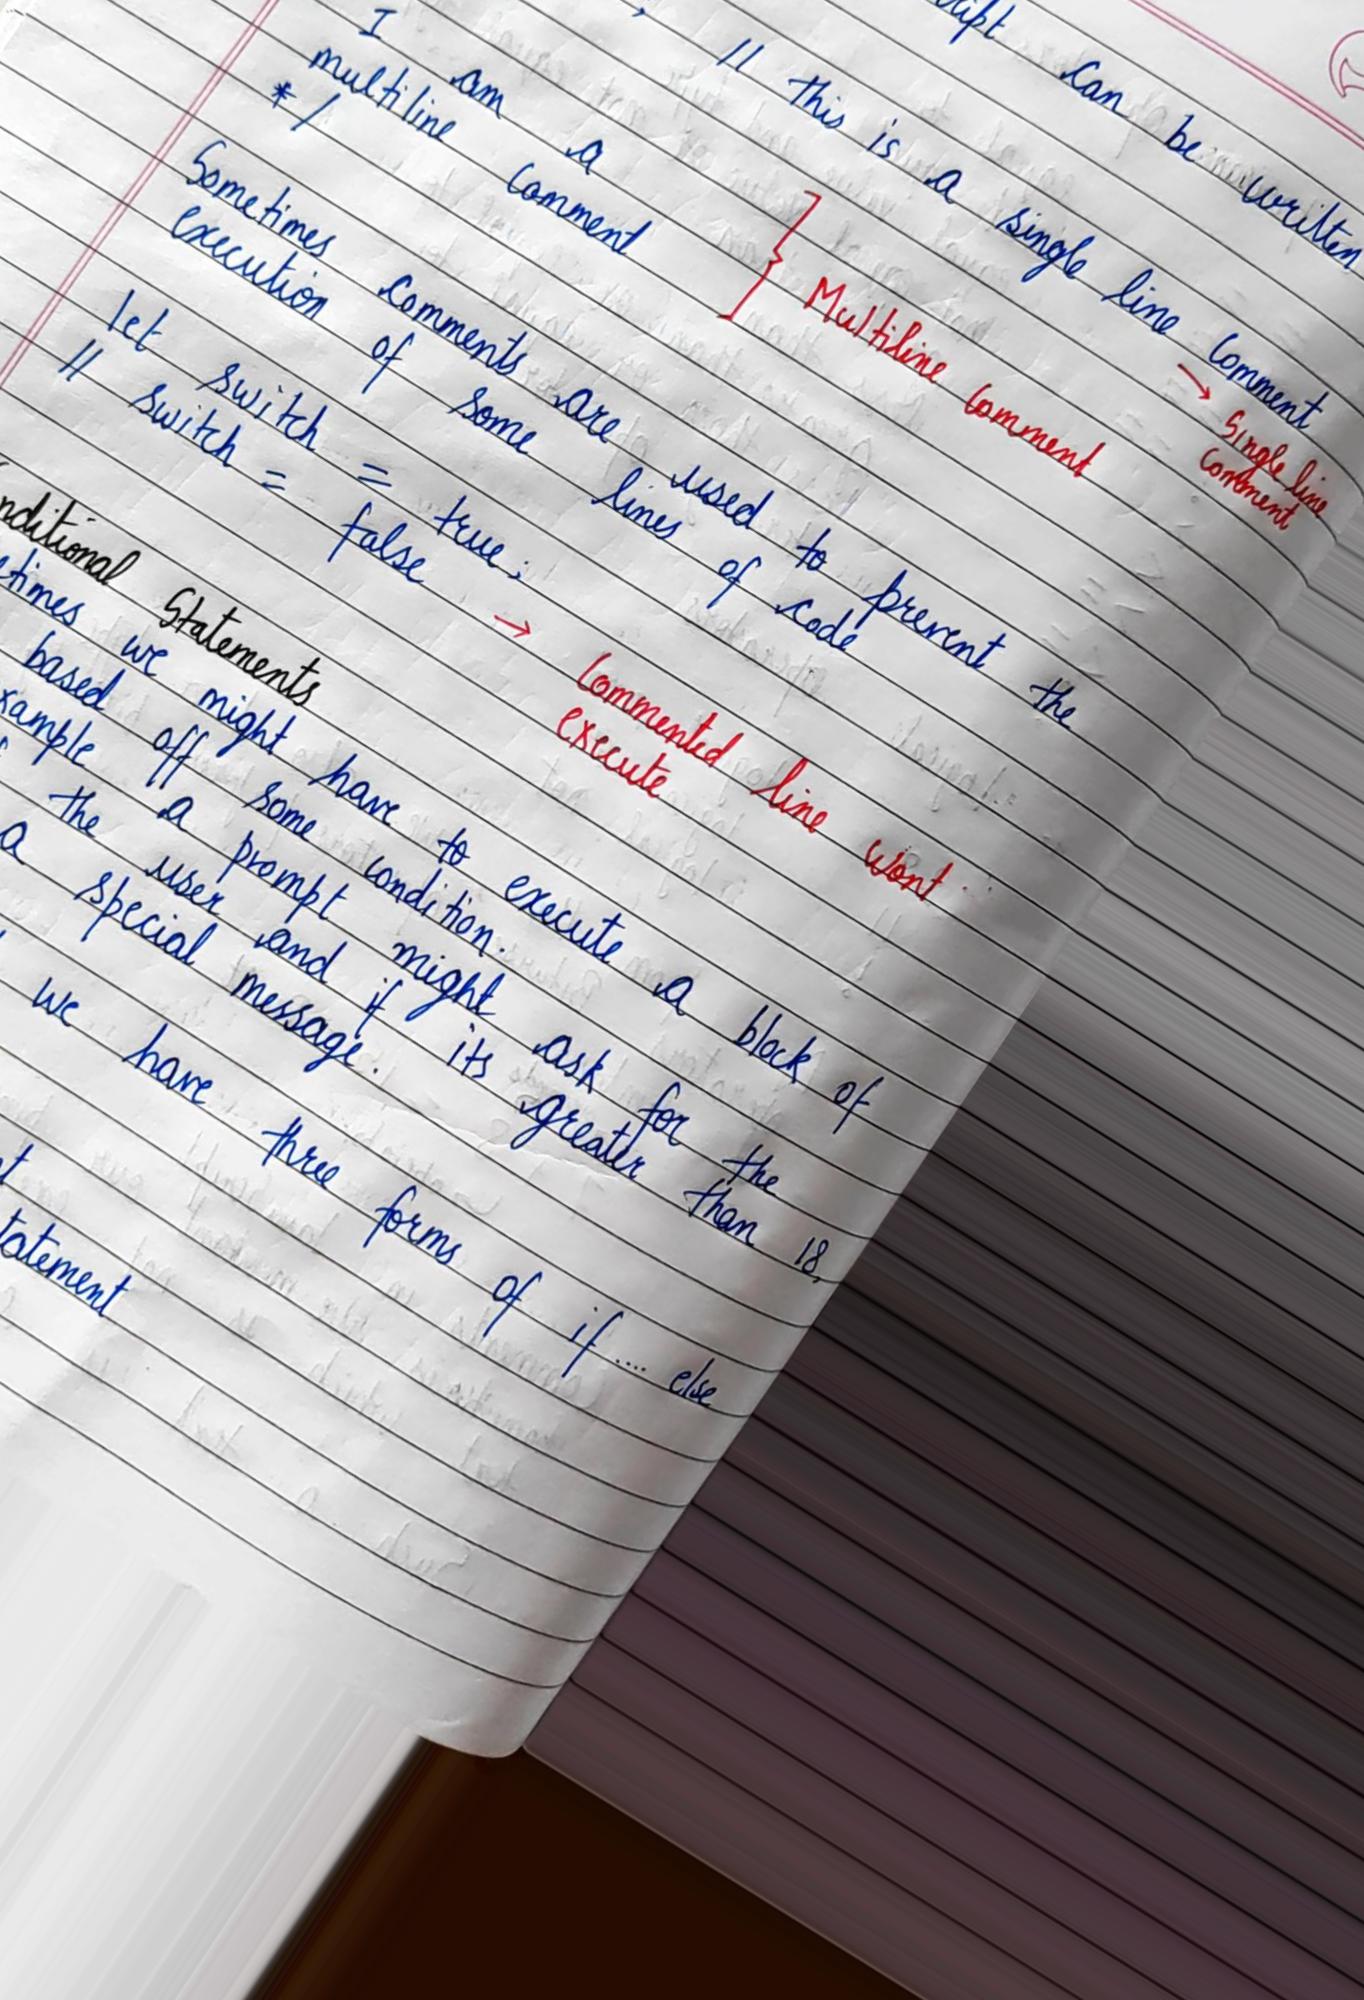 can be written
// this is a single line comment → Single line comment
I am a
multiline comment
*/
} Multiline comment
Sometimes comments are used to prevent the
execution of some lines of code
let switch = true;
// switch = false → Commented line wont execute
Statements
we might have to execute a block of
based off some condition.
a prompt might ask for the
the user and if its greater than 18,
a special message.
we have three forms of if .... else